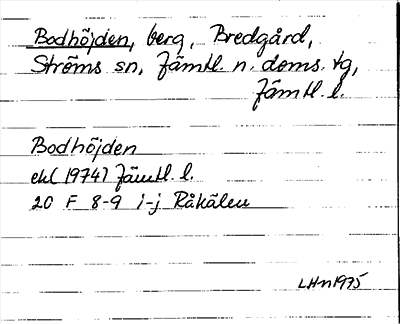 Bodhöjden, berg, Bredgård,
Ströms sn, Jämtl. n. doms. tg,
Jämtl. l.
Bodhöjden
ek (1974) Jämtl. l.
20 F 8-9 i-j Råkälen
LHn1975